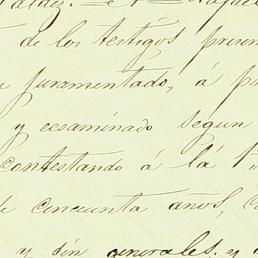 de los testigos
juramentado, á
y ecsaminado segun
contestando á la
de cincuenta años,
y sin generales. y